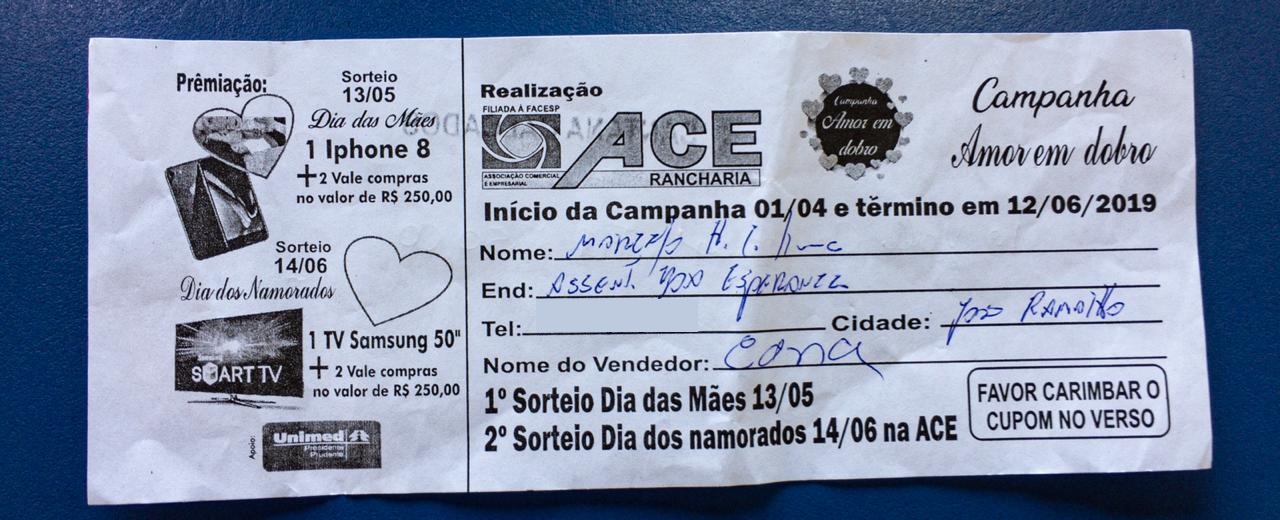 Prêmiação:
Sorteio
13/05
Dia das Mães
1 Iphone 8
+ 2 Vale compras
no valor de R$ 250,00
Sorteio
14/06
Dia dos Namorados
1 TV Samsung 50"
+ 2 Vale compras
no valor de R$ 250,00
SMART TV
Apoio:
Unimed
Presidente
Prudente
Realização
FILIADA À FACESP
ACE
ASSOCIAÇÃO COMERCIAL
E EMPRESARIAL
RANCHARIA
Campanha
Amor em
dobro
Campanha
Amor em dobro
Início da Campanha 01/04 e término em 12/06/2019
Nome:
End: ASSENT. BOA ESPERANZA
Tel:
Cidade: JOÃO RAMALHO
Nome do Vendedor: Edna
1º Sorteio Dia das Mães 13/05
2º Sorteio Dia dos namorados 14/06 na ACE
FAVOR CARIMBAR O
CUPOM NO VERSO